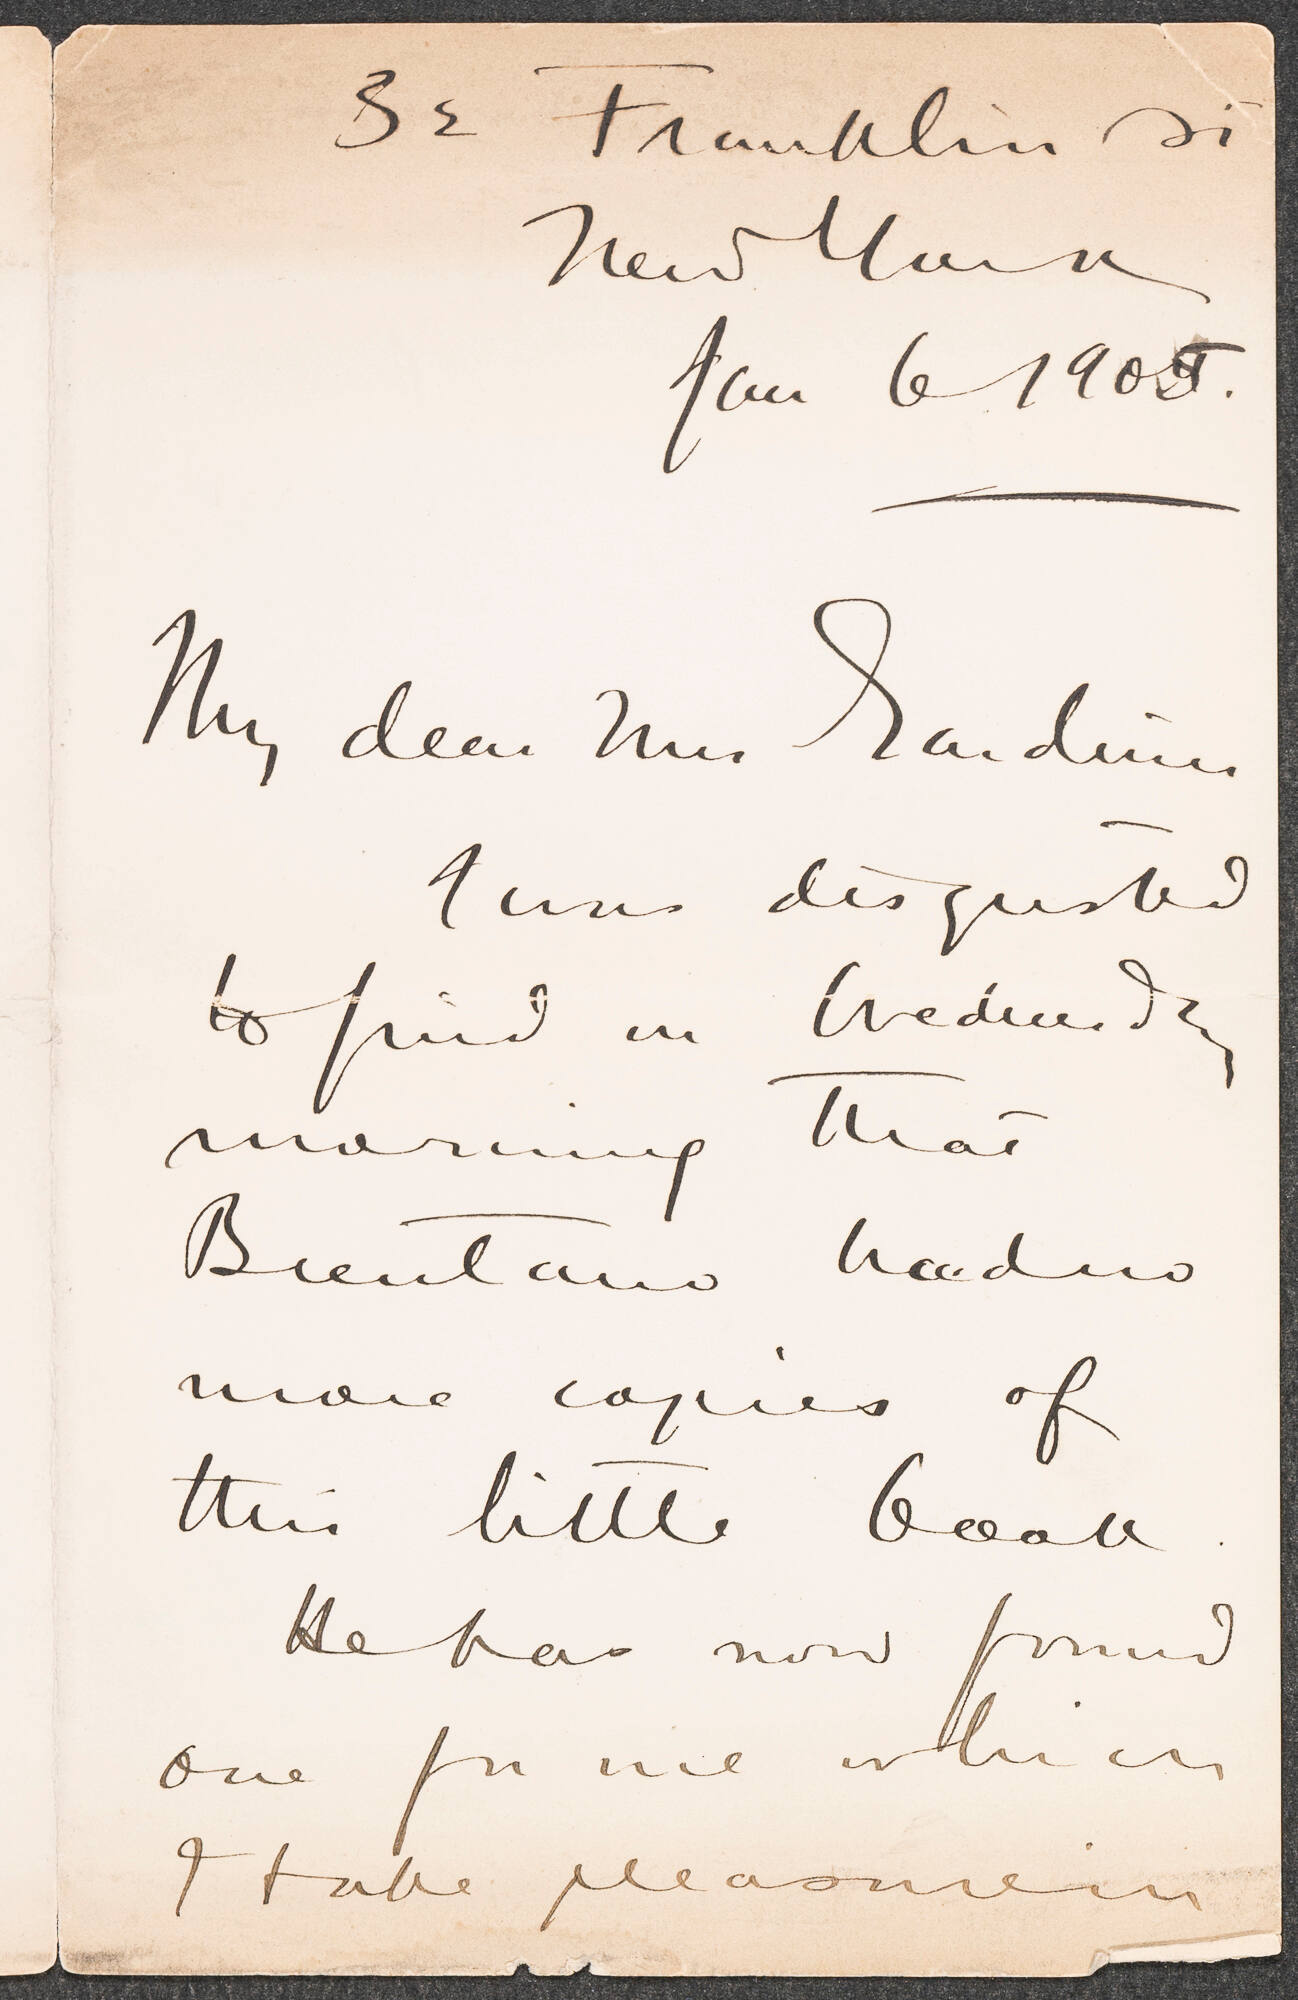 32 Franklin St
New York
Jan 6 1905.
My dear Mrs Gardiner
I was disgusted
to find on Wednesday
morning that
Brentano had no
more copies of
this little book.
He has now found
one for me which
I take pleasure in